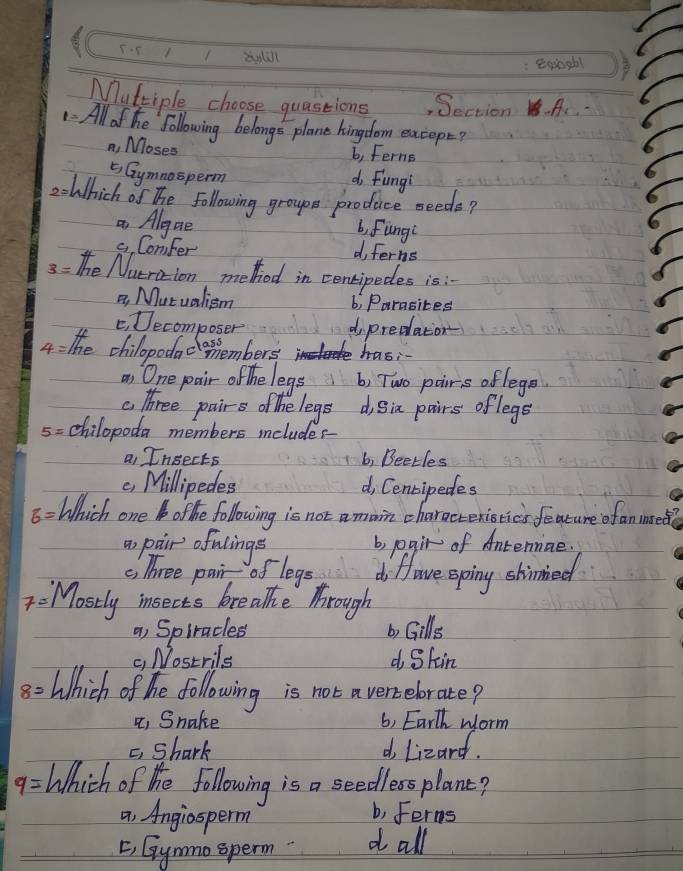 ٢٠٢ / / التاريخ
الموضوع :
Multiple choose quastions . Section A. -
1= All of the following belongs plant kingdom except?
a, Moses b, Ferns
c, Gymnosperm d, Fungi
2= Which of the following groups produce seeds?
a, Algae b, Fungi
c, Conifer d, ferns
3= The Nutrition method in centipedes is :-
a, Mutualism b, Parasites
c, Decomposer d, predator
4= The chilopoda class members include has :-
a, One pair of the legs b, Two pairs of legs.
c, Three pairs of the legs d, Six pairs of legs
5= chilopoda members includes-
a, Insects b, Beetles
c, Millipedes d, Centipedes
6= Which one of the following is not a main characteristics feature of an insect?
a, pair of wings b, pair of Antennae.
c, Three pair of legs d, Have spiny skinned
7= Mostly insects breathe through
a, Spiracles b, Gills
c, Nostrils d, Skin
8= Which of the following is not a vertebrate?
a, Snake b, Earth worm
c, Shark d, Lizard.
9= Which of the following is a seedless plant?
a, Angiosperm b, Ferns
c, Gymnosperm d, all